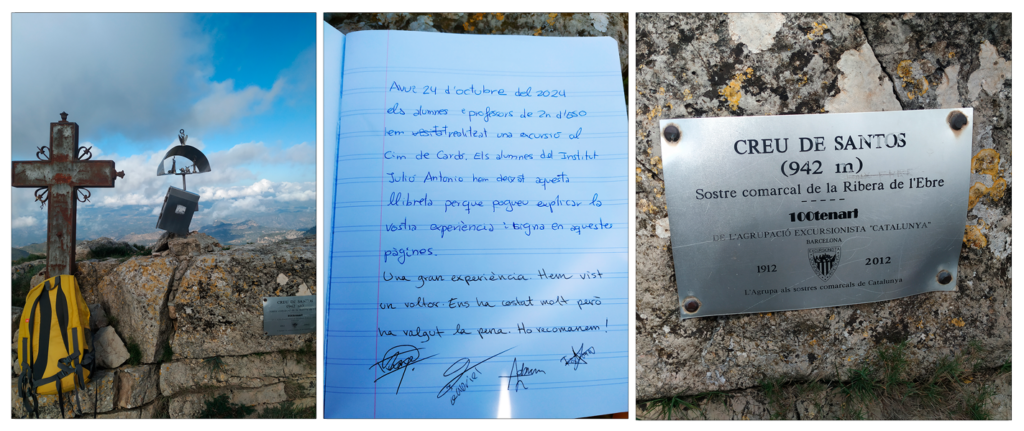 CREU DE SANTOS
Avui 24 d'octubre del 2024
els alumnes i professors de 2n d'ESO
em realitzat una excursió al
Cim de Cardó. Els alumnes del Institut
Julio Antonio hem deixat aquesta
llibreta perque pogueu explicar la
vostra experiència i signa en aquestes
pàgines.
Una gran experiència. Hem vist
un voltor. Ens ha costat molt però
ha valgut la pena. Ho recomanem!
Gabriel
Adrian
CREU DE SANTOS
(942 m)
Sostre comarcal de la Ribera de l'Ebre
100tenari
DE L'AGRUPACIÓ EXCURSIONISTA "CATALUNYA"
BARCELONA
1912 2012
L'Agrupa als sostres comarcals de Catalunya